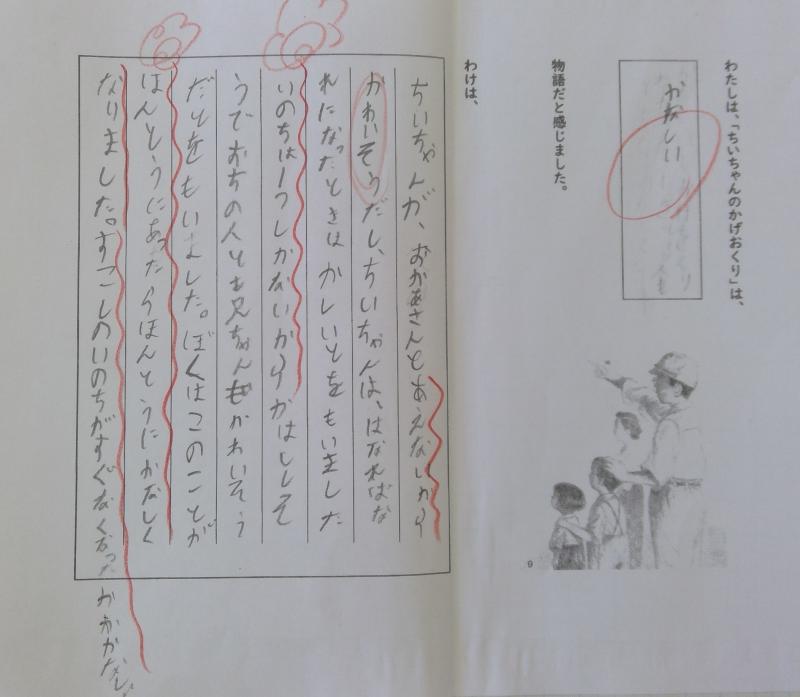 わたしは、「ちいちゃんのかげおくり」は、
かなしい
物語だと感じました。
わけは、
ちいちゃんが、おかあさんとあえないから
かわいそうだし、ちいちゃんは、はなればな
れになったときは かしいとをもいました
いのちは1つしかないから かはしそ
うでおちの人とお兄ちゃんもかわいそう
だとをもいました。ぼくはこのことが
ほんとうにあったらほんとうにかなしく
なりました。すこしのいのちがすぐなくなった
9